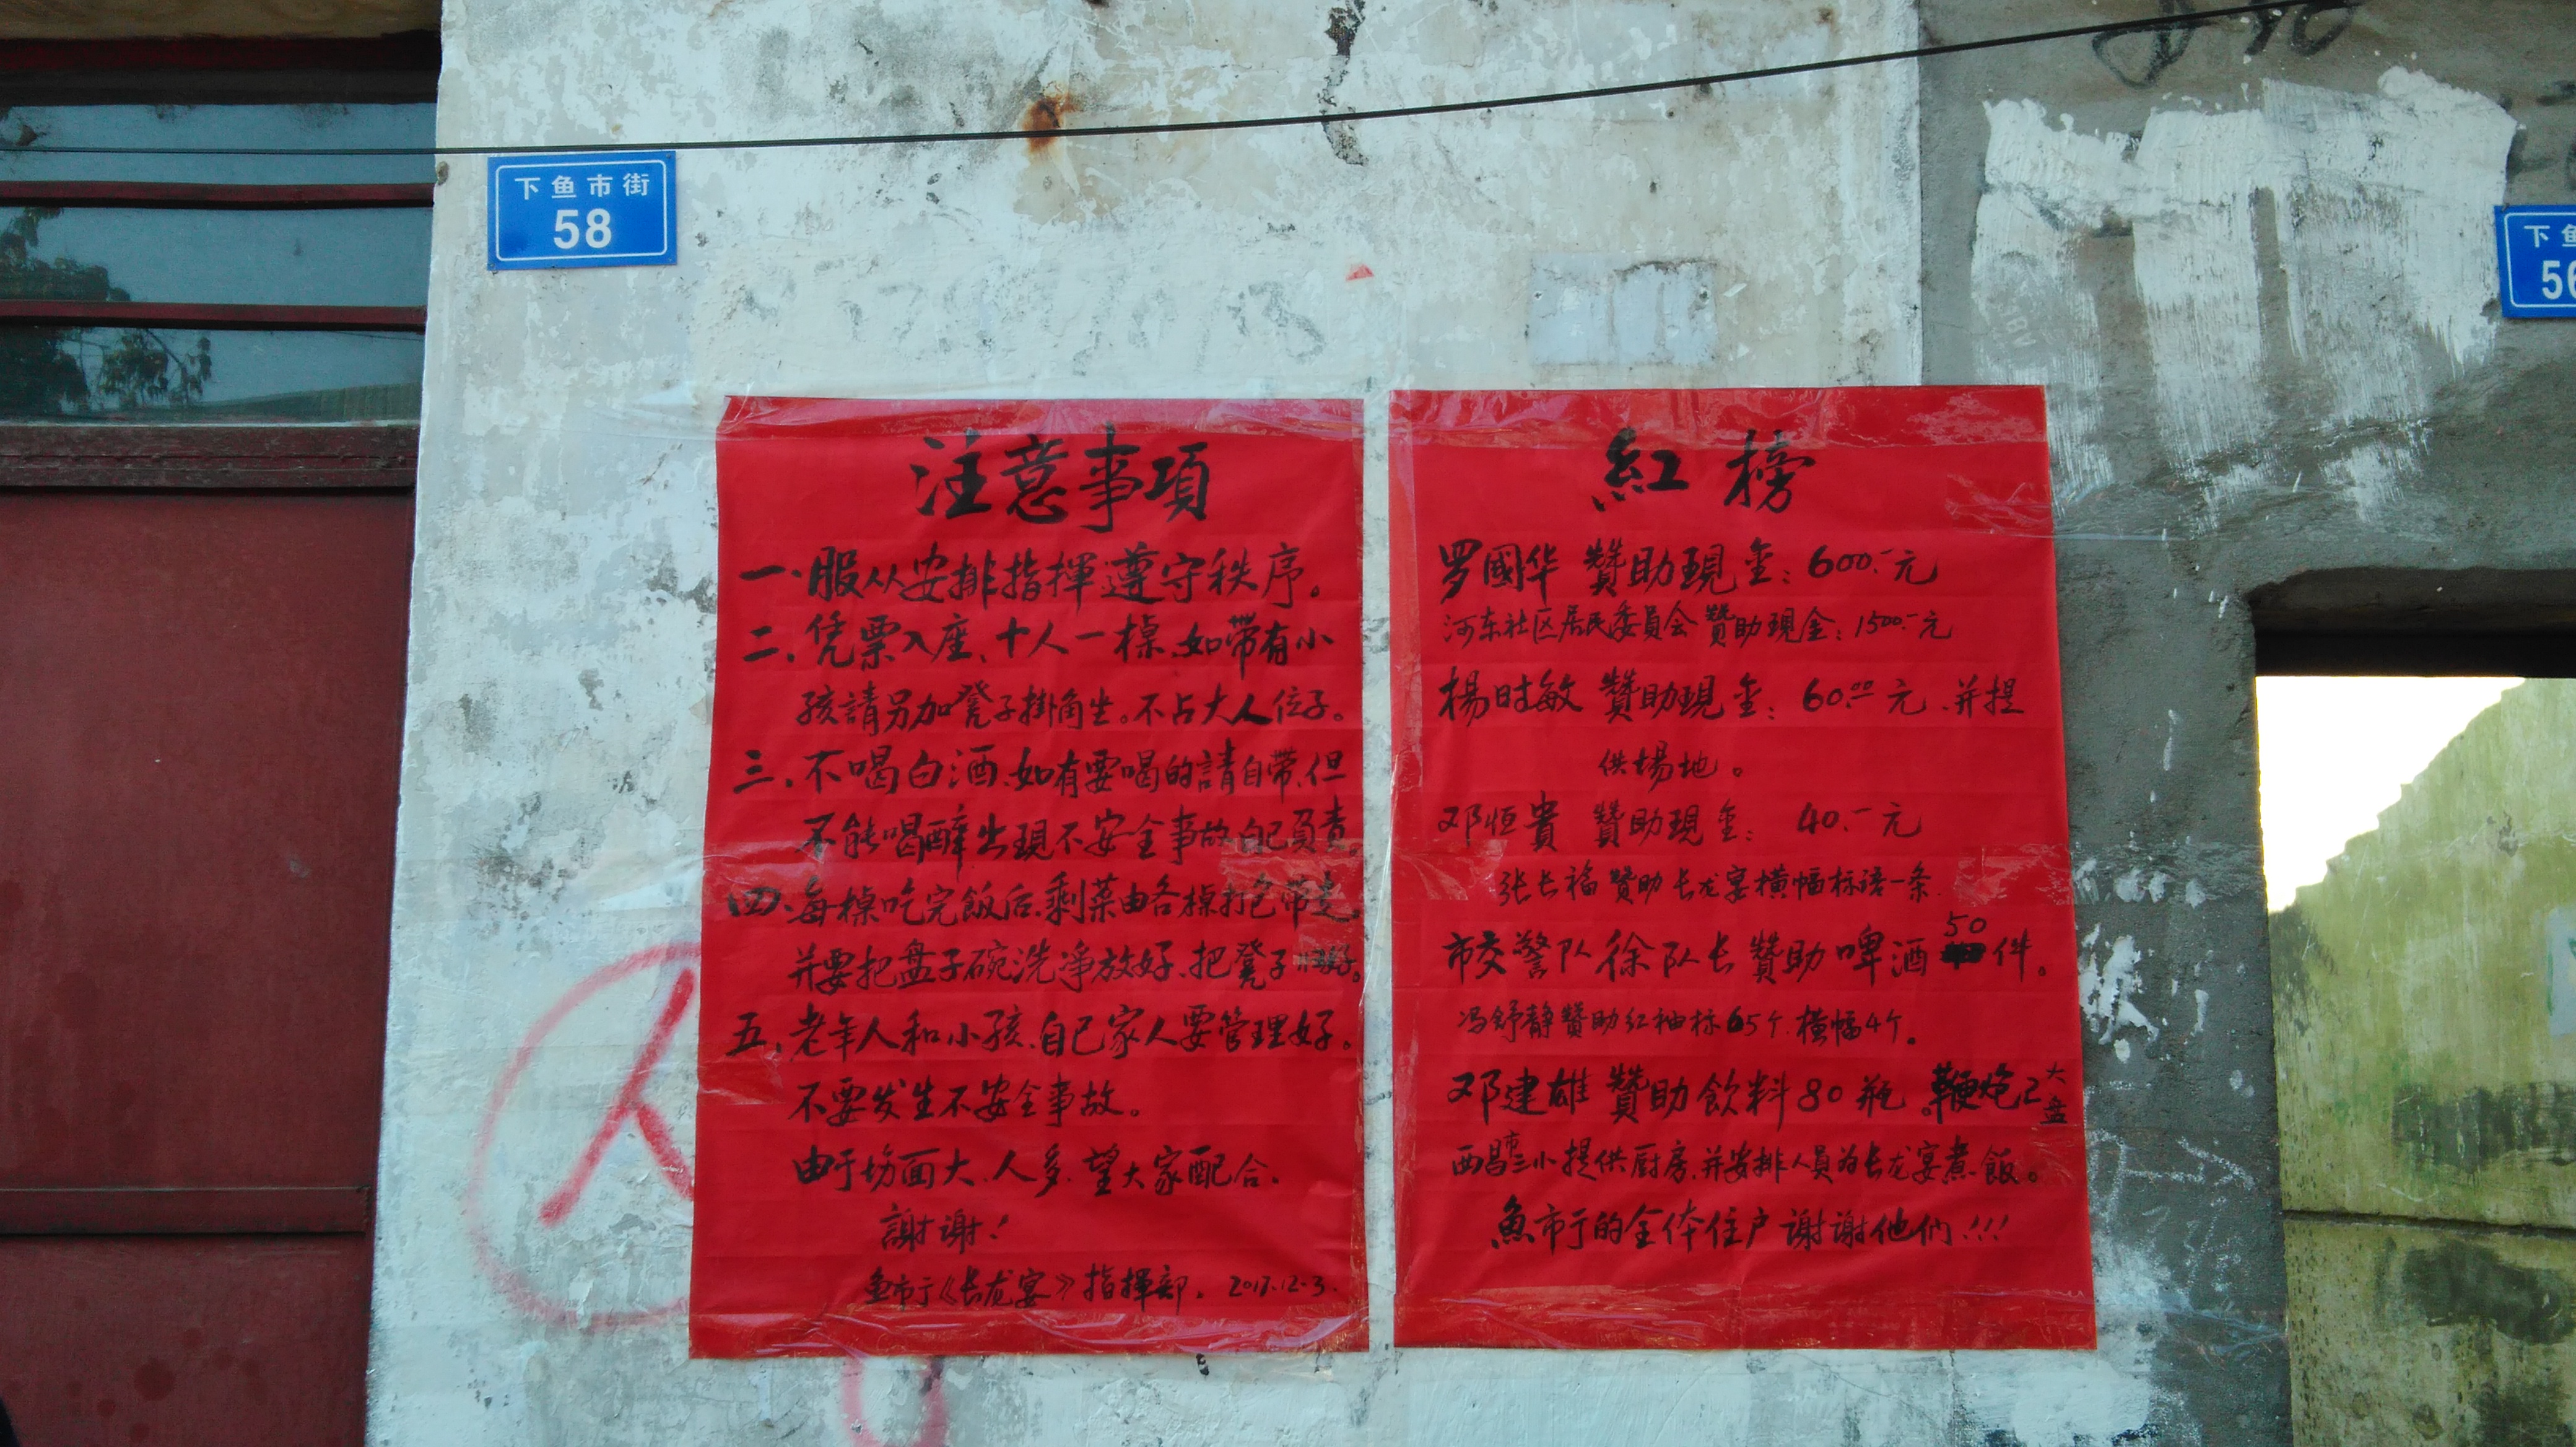 下鱼市街
58
下鱼
56
注意事項
一、服从安排指揮遵守秩序。
二、凭票入座、十人一棹、如带有小
孩請另加凳子掛角坐。不占大人位子。
三、不喝白酒、如有要喝的請自带、但
不能喝醉出現不安全事故自己負責。
四、每棹吃完飯后、剩菜由各棹打包带走
并要把盘子碗洗净放好、把凳子好。
五、老年人和小孩、自己家人要管理好。
不要发生不安全事故。
由于场面大、人多、望大家配合。
謝谢！
鱼市亍《长龙宴》指揮部。2017.12.3.
紅榜
罗國华 贊助現金：600.元
河东社区居民委員会 贊助現金：1500.元
楊时敏 贊助現金：60.00元、并提
供場地。
邓恒貴 贊助現金：40.元
张长福 贊助长龙宴横幅标语一条.
市交警队徐队长贊助啤酒50件。
冯舒静贊助红袖标65个.横幅4个。
邓建雄 贊助飲料80瓶。鞭炮2大盘
西昌市三小提供厨房、并安排人員为长龙宴煮飯。
魚市亍的全体住户谢谢他们！！！